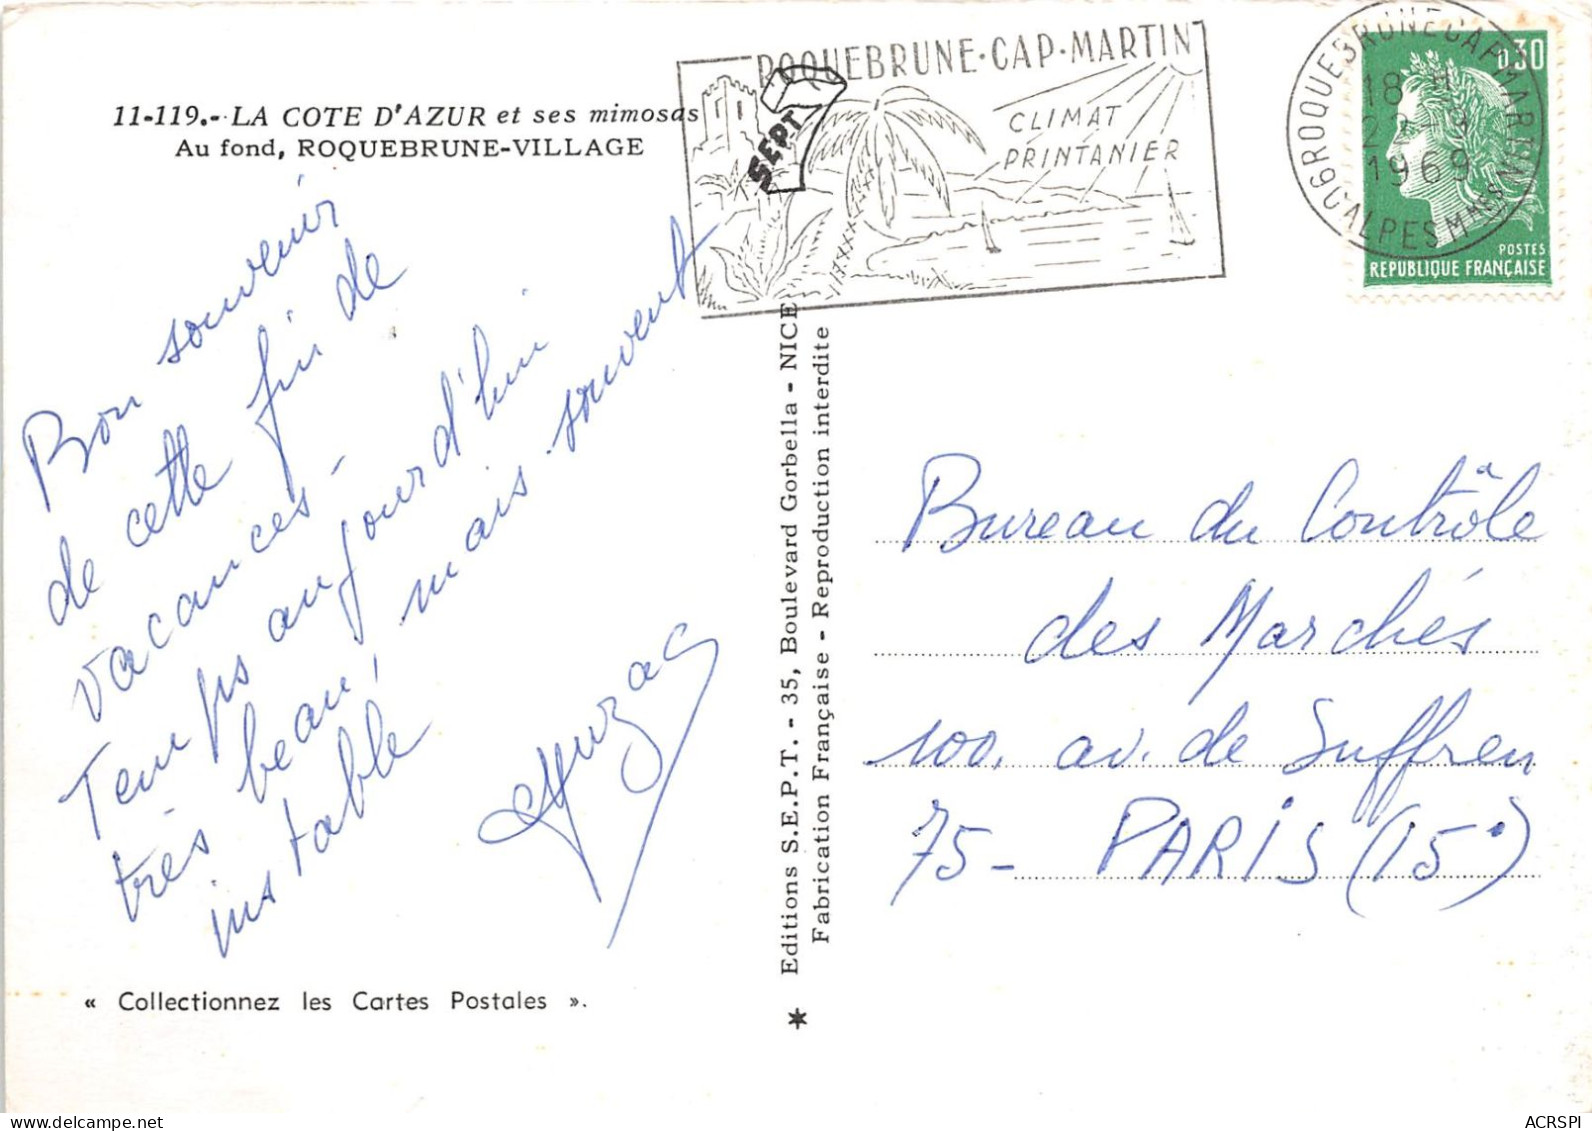 11-119.- LA COTE D'AZUR et ses mimosas
Au fond, ROQUEBRUNE-VILLAGE
Bon souvenir
de cette fin de
vacances -
Temps aujourd'hui
très beau, mais souvent
instable
« Collectionnez les Cartes Postales ».
Editions S.E.P.T. - 35, Boulevard Gorbella - NICE
Fabrication Française - Reproduction interdite
SEPT
ROQUEBRUNE·CAP·MARTIN
CLIMAT
PRINTANIER
ROQUEBRUNE CAP MARTIN
18 H
22-
1969
06 ALPES MMES
0,30
POSTES
REPUBLIQUE FRANÇAISE
Bureau du Contrôle
des Marchés
100, av. de Suffren
75- PARIS (15°)
delcampe.net
ACRSPI